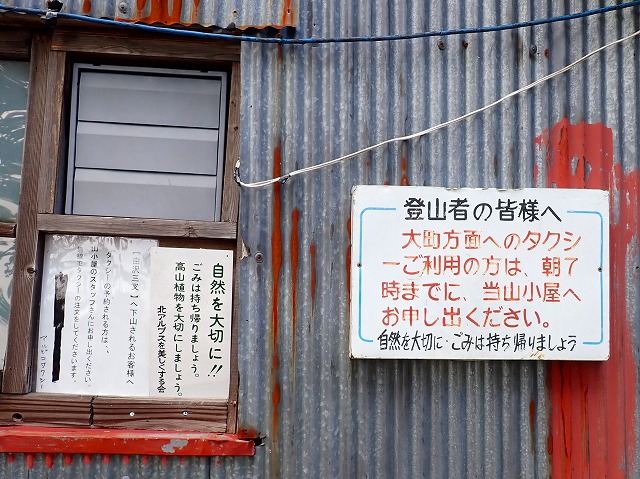 登山者の皆様へ
大町方面へのタクシ
ーご利用の方は、朝7
時までに、当山小屋へ
お申し出ください。
自然を大切に・ごみは持ち帰りましょう
自然を大切に!!
ごみは持ち帰りましょう。
高山植物を大切にしましょう。
北アルプスを美しくする会
【由沢三叉】へ下山されるお客様へ
タクシーの予約される方は、
山小屋のスタッフさんにお申し出ください。
タクシーの注文をしてくださいます。